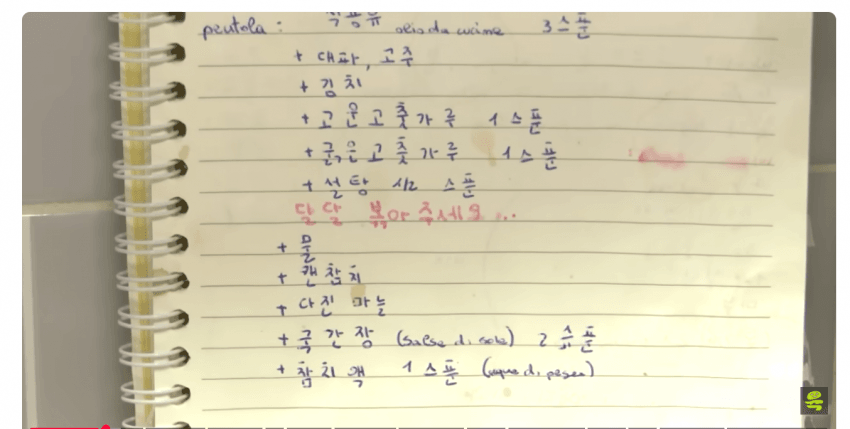 pentola : 식용유 olio da cucina 3 스푼
+ 대파, 고추
+ 김치
+ 고운 고춧가루 1 스푼
+ 굵은 고춧가루 1 스푼
+ 설탕 1/2 스푼
달달 볶아주세요...
+ 물
+ 캔참치
+ 다진 마늘
+ 국간장 (salsa di soia) 2 스푼
+ 참치액 1 스푼